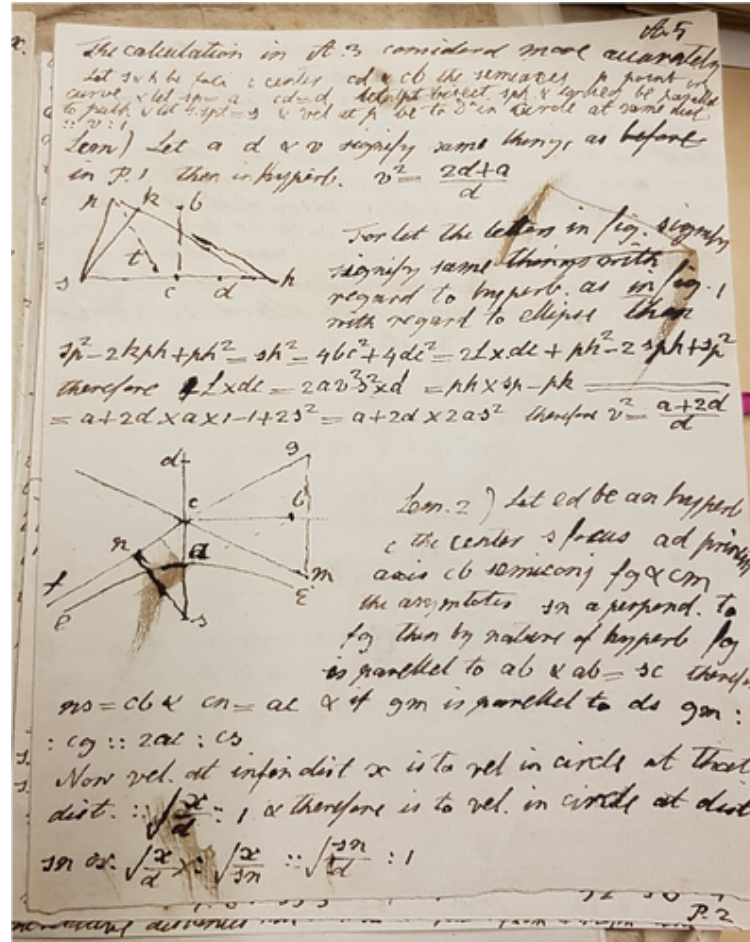 A.5
The calculation in A.3 considered more accurately
Let s & h be foci c center cd & cb the semiaxes p point in
curve & let sp = a cd = d let pt bisect sph & be parall
to path & let s.spt = s & vel at p be to D° in circle at same dist
:: v : 1
Lem) Let a d & v signify same things as before
in P.1 then in hyperb. v² = 2d+a / d
n k b
s t c d h
For let the letters in fig. signify
signify same things with
regard to hyperb. as in fig. 1
with regard to ellipse then
sp² – 2kph + ph² = sh² = 4bc² + 4dc² = 2L x dc + ph² – 2 sph + sp²
therefore L x dc = 2av²s² x d = ph x sp – pk
= a + 2d x a x 1 – 1 + 2s² = a + 2d x 2as² therefore v² = a+2d / d
d g
c b
n a
f m
e s e
Lem. 2) Let ed be an hyperb
c the center s focus ad princip
axis cb semiconj fg & cm
the asymtotes sn a perpend. to
fg then by nature of hyperb fg
is parellel to ab & ab = sc therefo
ns = cb & cn = ac & if gm is parellel to ds gm :
: cg :: 2ac : cs
Now vel. at infin dist x is to vel in circle at that
dist. :: √x/d : 1 & therefore is to vel. in circle at dist
sn as √x/d : √x/sn :: √sn/d : 1
P.2